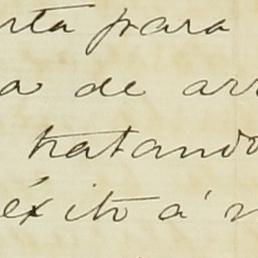 rta para
a de arr
tratando
éxito á n